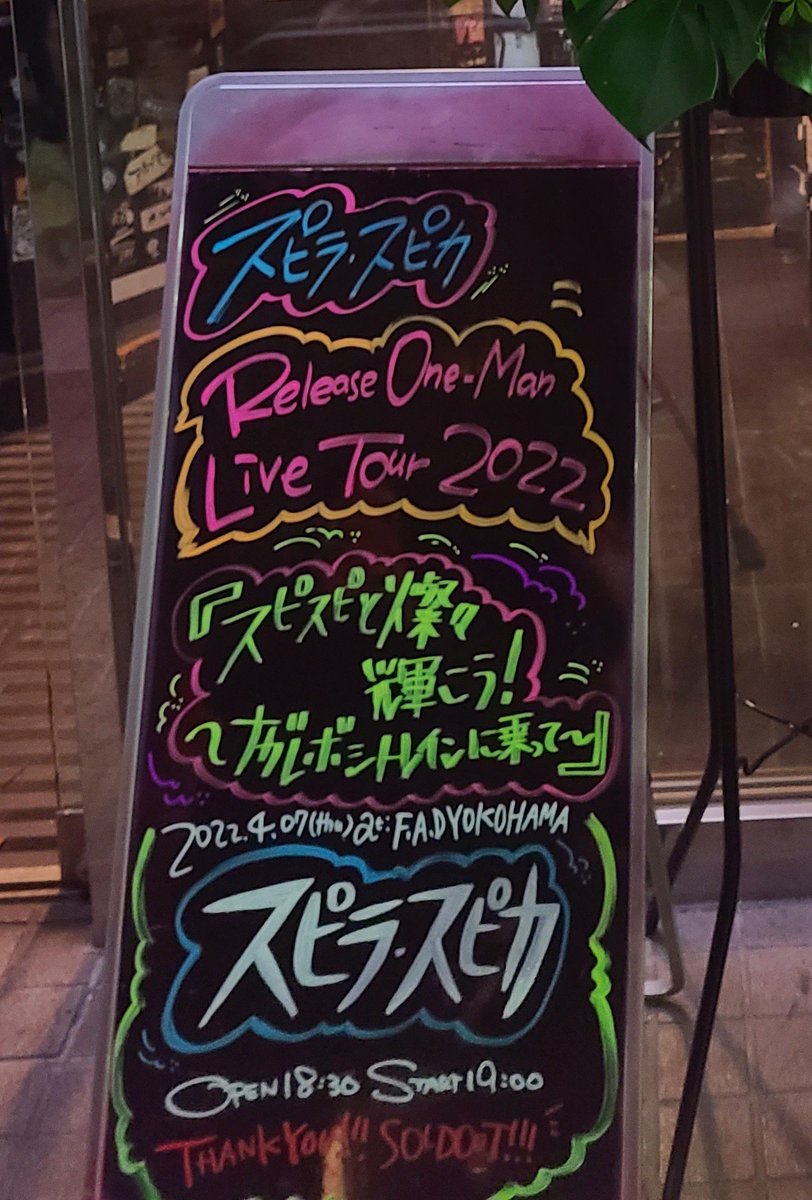 スピラ・スピカ
Release One-Man
Live Tour 2022
『スピスピと燦々
輝こう!
〜ナガレボシトレインに乗って〜』
2022.4.07(thu)at:F.A.DYOKOHAMA
スピラ・スピカ
OPEN18:30 START19:00
THANK YOU!!! SOLDOUT!!!